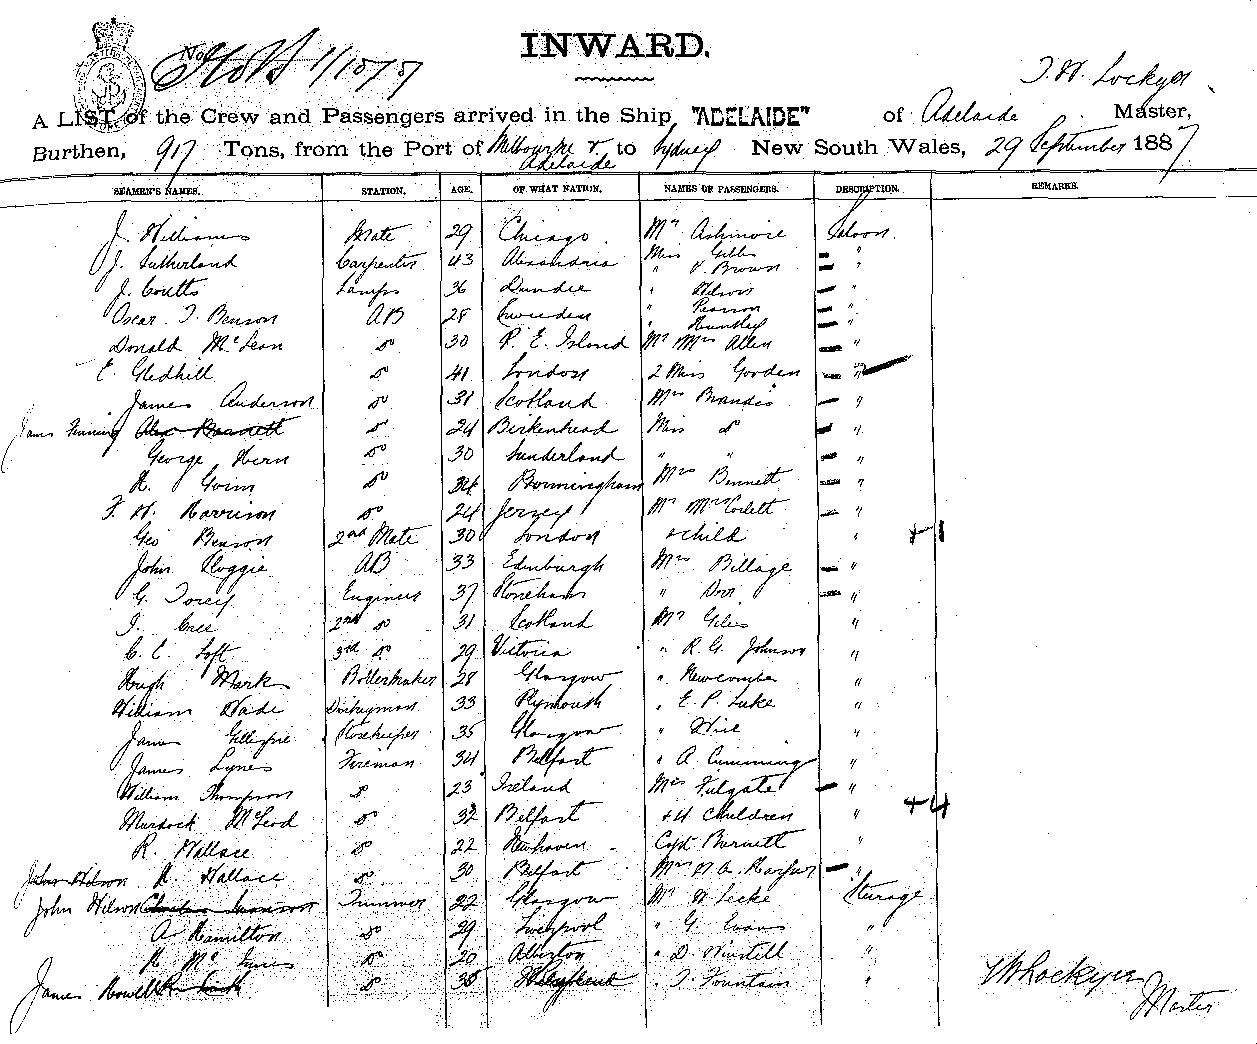 No
1/10/87
INWARD.
T. W. Lockyer
A LIST of the Crew and Passengers arrived in the Ship "ADELAIDE" of Adelaide Master,
Burthen, 917 Tons, from the Port of Melbourne & Adelaide to Sydney New South Wales, 29 September 1887
SEAMEN'S NAMES. STATION. AGE. OF WHAT NATION. NAMES OF PASSENGERS. DESCRIPTION. REMARKS.
J. Williams Mate 29 Chicago Mr Ashmore Saloon
J. Sutherland Carpenter 43 Alexandria Miss Gibbs "
" V Brown
J. Coutts Lamps 36 Dundee " Wilson "
Oscar T. Benson AB 28 Sweden " Pearson "
" Huntley
Donald McLean do 30 P. E. Island Mr Mrs Allen "
E. Gledhill do 41 London 2 Miss Gorden "
James Anderson do 31 Scotland Mrs Brandis "
James Alex Bennett do 24 Birkenhead Miss do "
George Hern do 30 Sunderland " " "
do 34 Birmingham Mrs Bennett "
F. W. Harrison do 24 Jersey Mr Mrs Corlett "
Geo Benson 2nd Mate 30 London & child " +1
John Cloggie AB 33 Edinburgh Mrs Billage "
G. Torey Engineer 37 Stoneham " "
T. Cree 2nd do 31 Scotland Mr Giles "
C. C. Loft 3rd do 29 Victoria " R. G. Johnson "
Hugh Mark Boilermaker 28 Glasgow " Newcombe "
William Wade Donkeyman 33 Plymouth " E. P. Luke "
James Gillespie Storekeeper 35 Glasgow " "
James Lynes Fireman 34 Belfast " A Cumming "
William Thompson do 23 Ireland Mrs Fulgate "
Murdock McLeod do 32 Belfast +4 Children +4
R. Wallace do 22 Newhaven Capt Barnett "
John Wilson R Wallace do 30 Belfast Mrs "
John Wilson Trimmer 22 Glasgow Mr W Locke Steerage
A Hamilton do 29 Liverpool " G. Evans "
do 20 Alberton " D. "
James do 35 " T Fountain "
TW Lockyer
Master